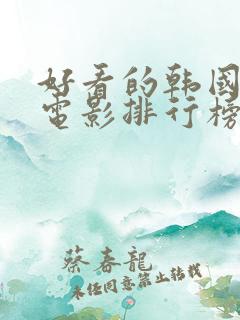 好看的韩國
電影排行榜
蔡春龍
未经同意禁止转载